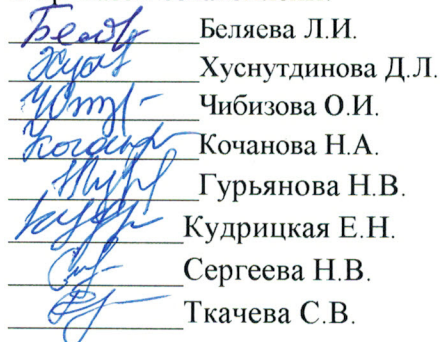 Беляева Л.И.
Хуснутдинова Д.Л.
Чибизова О.И.
Кочанова Н.А.
Гурьянова Н.В.
Кудрицкая Е.Н.
Сергеева Н.В.
Ткачева С.В.